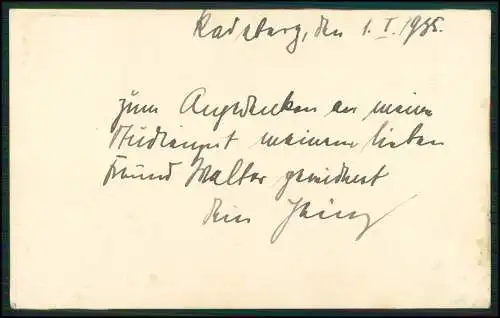 Radeberg, den 1. I. 1935.
zum Angedenken an meine
Studienzeit meinem lieben
Freund Walter gewidmet
Dein